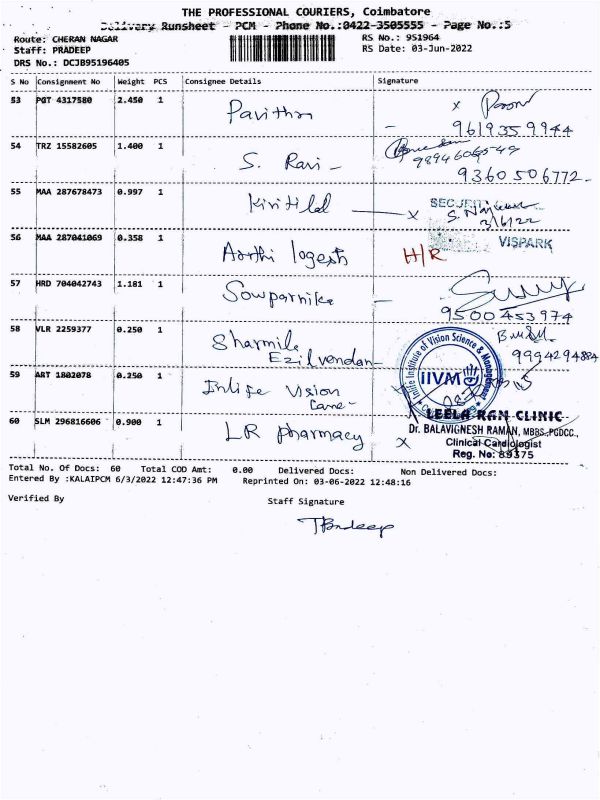 THE PROFESSIONAL COURIERS, Coimbatore
Delivery Runsheet - PCM - Phone No.:0422-3505555 - Page No.:5
Route: CHERAN NAGAR
RS No.: 951964
Staff: PRADEEP
RS Date: 03-Jun-2022
DRS No.: DCJB95196405
S No Consignment No Weight PCS Consignee Details Signature
53 PGT 4317580 2.450 1 Pavithra
9619359944
54 TRZ 15582605 1.400 1 S. Ravi -
9894606549
9360506772
55 MAA 287678473 0.997 1 Kiritilal x
SECURITY
3/6/22
56 MAA 287041069 0.358 1 Aarthi logesh H/R
VISPARK
57 HRD 704042743 1.181 1 Sowparnika
9500453974
58 VLR 2259377 0.250 1 Sharmila
Ezilvendan
9994294884
59 ART 1802078 0.250 1 Inlife Vision
Care
Inlife Institute of Vision Science & Management
IIVM
60 SLM 296816606 0.900 1 LR pharmacy x
LEELA RAM CLINIC
Dr. BALAVIGNESH RAMAN, MBBS.,PGDCC.,
Clinical Cardiologist
Reg. No: 89375
Total No. Of Docs: 60 Total COD Amt: 0.00 Delivered Docs: Non Delivered Docs:
Entered By :KALAIPCM 6/3/2022 12:47:36 PM Reprinted On: 03-06-2022 12:48:16
Verified By Staff Signature